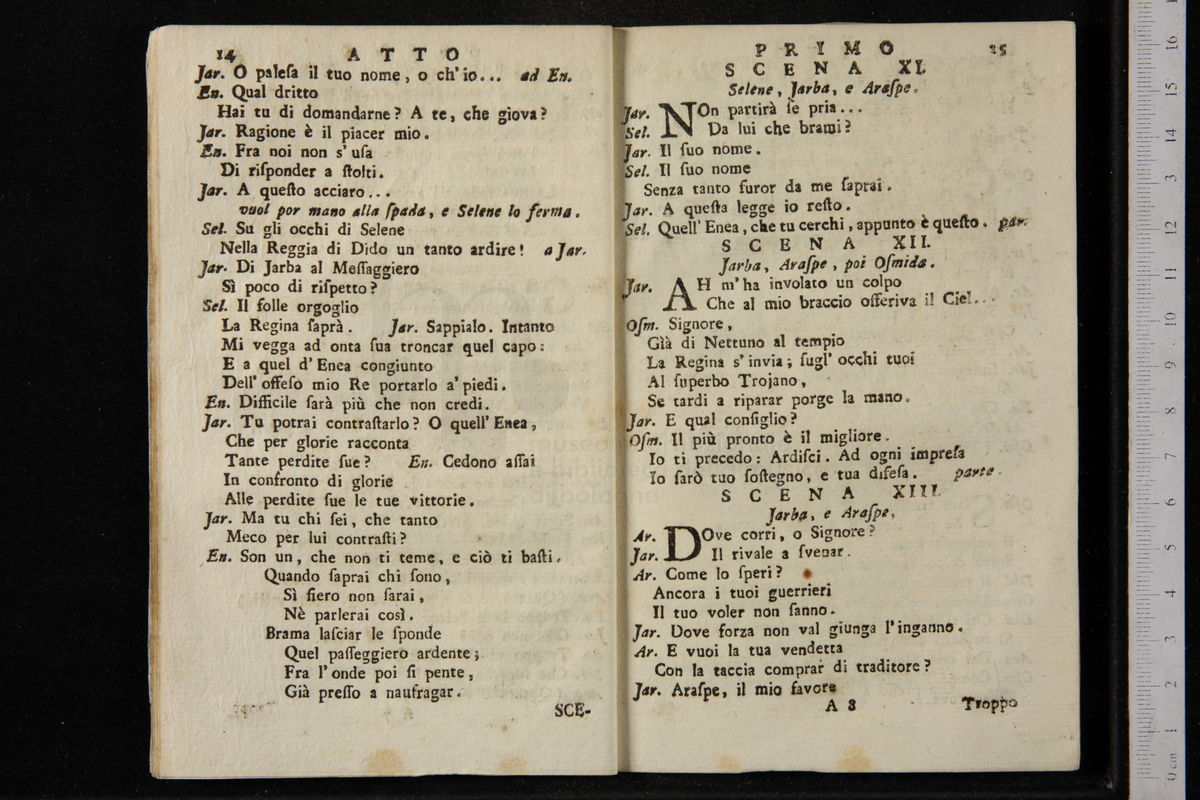 14 ATTO
Jar. O paleſa il tuo nome, o ch'io... ad En.
En. Qual dritto
Hai tu di domandarne? A te, che giova?
Jar. Ragione è il piacer mio.
En. Fra noi non s'uſa
Di riſponder a ſtolti.
Jar. A queſto acciaro...
vuol por mano alla ſpada, e Selene lo ferma.
Sel. Su gli occhi di Selene
Nella Reggia di Dido un tanto ardire! a Jar.
Jar. Di Jarba al Meſſaggiero
Sì poco di riſpetto?
Sel. Il folle orgoglio
La Regina ſaprà. Jar. Sappialo. Intanto
Mi vegga ad onta ſua troncar quel capo:
E a quel d'Enea congiunto
Dell'offeſo mio Re portarlo a'piedi.
En. Difficile ſarà più che non credi.
Jar. Tu potrai contraſtarlo? O quell'Enea,
Che per glorie racconta
Tante perdite ſue? En. Cedono aſſai
In confronto di glorie
Alle perdite ſue le tue vittorie.
Jar. Ma tu chi ſei, che tanto
Meco per lui contraſti?
En. Son un, che non ti teme, e ciò ti baſti.
Quando ſaprai chi ſono,
Sì fiero non ſarai,
Nè parlerai così.
Brama laſciar le ſponde
Quel paſſeggiero ardente;
Fra l'onde poi ſi pente,
Già preſſo a naufragar.
SCE-
PRIMO 15
SCENA XI.
Selene, Jarba, e Araſpe.
Jar. NOn partirà ſe pria...
Sel. Da lui che brami?
Jar. Il ſuo nome.
Sel. Il ſuo nome
Senza tanto furor da me ſaprai.
Jar. A queſta legge io reſto.
Sel. Quell'Enea, che tu cerchi, appunto è queſto. par.
SCENA XII.
Jarba, Araſpe, poi Oſmida.
Jar. AH m'ha involato un colpo
Che al mio braccio offeriva il Ciel...
Oſm. Signore,
Già di Nettuno al tempio
La Regina s'invia; ſugl'occhi tuoi
Al ſuperbo Trojano,
Se tardi a riparar porge la mano.
Jar. E qual conſiglio?
Oſm. Il più pronto è il migliore.
Io ti precedo: Ardiſci. Ad ogni impreſa
Io ſarò tuo ſoſtegno, e tua difeſa. parte.
SCENA XIII.
Jarba, e Araſpe.
Ar. DOve corri, o Signore?
Jar. Il rivale a ſvenar.
Ar. Come lo ſperi?
Ancora i tuoi guerrieri
Il tuo voler non ſanno.
Jar. Dove forza non val giunga l'inganno.
Ar. E vuoi la tua vendetta
Con la taccia comprar di traditore?
Jar. Araſpe, il mio favore
A 8 Troppo